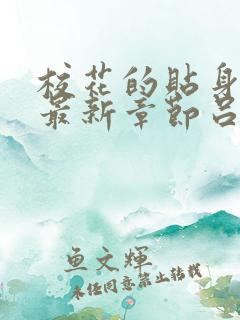 校花的贴身
最新章节吕
鱼文辉
未经同意禁止转载